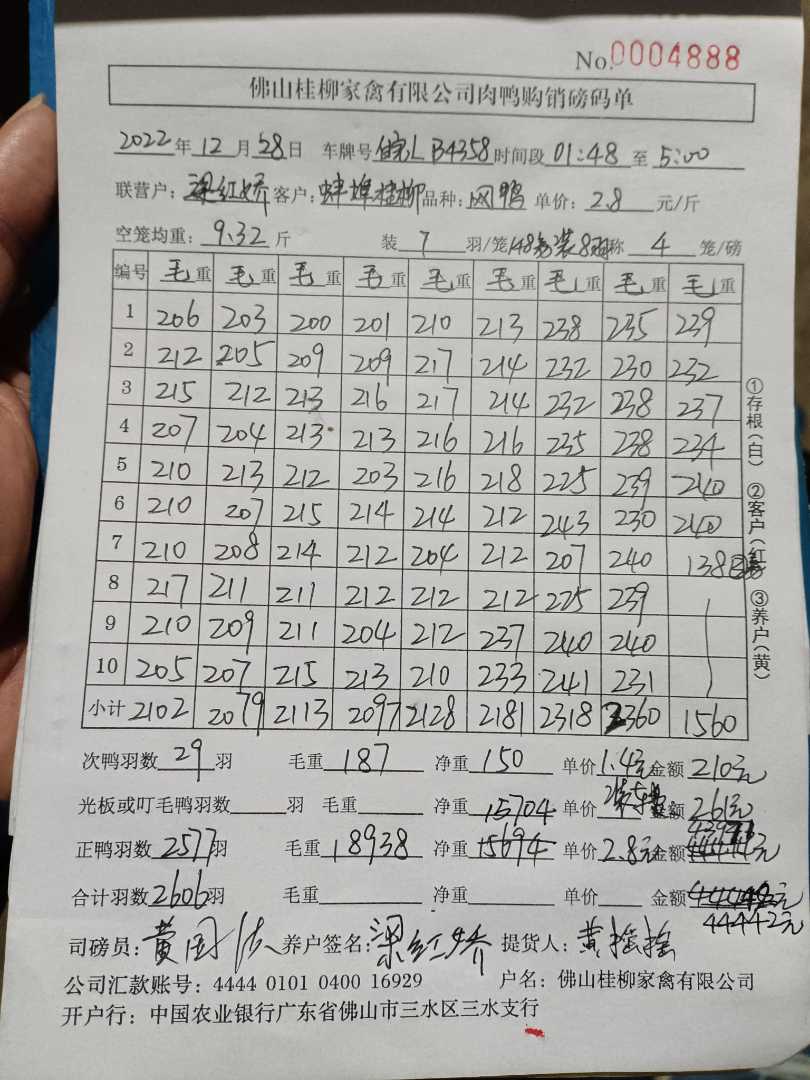 No.0004888
佛山桂柳家禽有限公司肉鸭购销磅码单
2022年12月28日 车牌号皖L B4358时间段01:48至5:00
联营户:梁红娇客户:蚌埠桂柳品种:网鸭 单价:2.8元/斤
空笼均重:9.32斤 装7羽/笼148笼装8羽称4笼/磅
编号 毛重 毛重 毛重 毛重 毛重 毛重 毛重 毛重 毛重
1 206 203 200 201 210 213 238 235 239
2 212 205 209 209 217 214 232 230 232
3 215 212 213 216 217 214 232 238 237
4 207 204 213 213 216 216 235 238 234
5 210 213 212 203 216 218 225 239 240
6 210 207 215 214 214 212 243 230 240
7 210 208 214 212 204 212 207 240 138
8 217 211 211 212 212 212 225 239
9 210 209 211 204 212 237 240 240
10 205 207 215 213 210 233 241 231
小计 2102 2079 2113 2097 2128 2181 2318 2360 1560
①存根(白) ②客户(红) ③养户(黄)
次鸭羽数29羽 毛重187 净重150 单价1.4元金额210元
光板或叮毛鸭羽数 羽 毛重 净重15704单价 金额261元
正鸭羽数2577羽 毛重18938 净重15694单价2.8元金额元
合计羽数2606羽 毛重 净重 单价 金额
44442元
司磅员: 黄国 养户签名:梁红娇 提货人:黄摇摇
公司汇款账号:4444 0101 0400 16929 户名:佛山桂柳家禽有限公司
开户行:中国农业银行广东省佛山市三水区三水支行